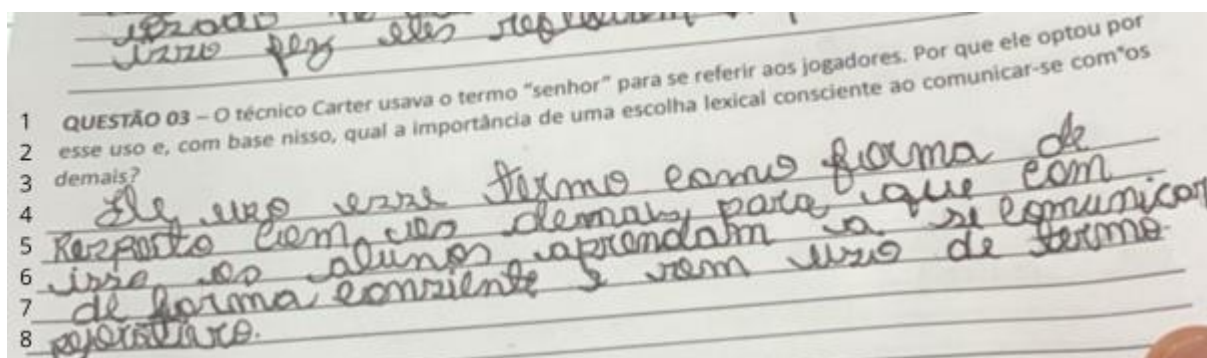 izzo fez eles
1 QUESTÃO 03 – O técnico Carter usava o termo "senhor" para se referir aos jogadores. Por que ele optou por
2 esse uso e, com base nisso, qual a importância de uma escolha lexical consciente ao comunicar-se com os
3 demais?
4 Ele uzo esse termo como forma de
5 Respeito com os demais, para que com
6 isso os alunos aprendam a si comunicar
7 de forma consiente e sem uzo de termo
8 pejorativo.